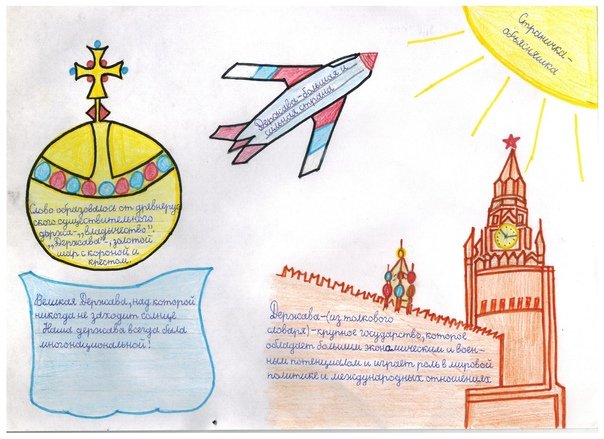 Страничка-
объясняшка
Держава-большая и
сильная страна
Слово образовалось от древнерус
ского существительного
държа-,,владычество".
,,Держава", золотой
шар с короной и
крестом.
Великая Держава, над которой
никогда не заходит солнце
Наша держава всегда была
многонациональной!
Держава-(из толкового
словаря)-крупное государство, которое
обладает большим экономическим и воен-
ным потенциалом и играет роль в мировой
политике и международных отношениях